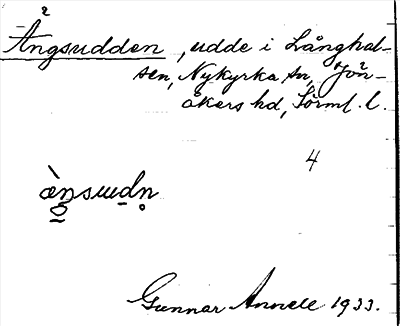 Ängsudden, udde i Långhal-
sen, Nykyrka sn, Jön-
åkers hd, Sörml. l.
4
Gunnar Annell 1933.